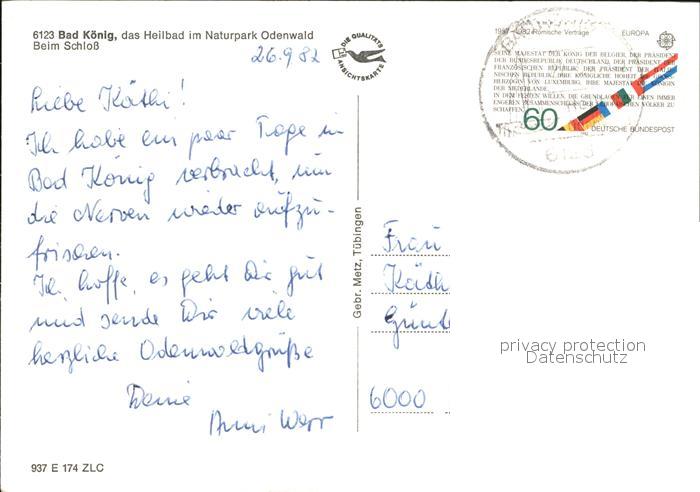 6123 Bad König, das Heilbad im Naturpark Odenwald
Beim Schloß
26.9.82
DIE QUALITÄTS
ANSICHTSKARTE
Liebe Käthi!
Ich habe ein paar Tage in
Bad König verbracht, um
die Nerven wieder aufzu-
frischen.
Ich hoffe, es geht Dir gut
und sende Dir viele
herzliche Odenwaldgrüße
Deine
Anni Warr
937 E 174 ZLC
Gebr. Metz, Tübingen
1957-1982 Römische Verträge
EUROPA
SEINE MAJESTÄT DER KÖNIG DER BELGIER, DER PRÄSIDENT
DER BUNDESREPUBLIK DEUTSCHLAND, DER PRÄSIDENT DER
FRANZÖSISCHEN REPUBLIK, DER PRÄSIDENT DER ITALIE-
NISCHEN REPUBLIK, IHRE KÖNIGLICHE HOHEIT DIE
HERZOGIN VON LUXEMBURG, IHRE MAJESTÄT DIE KÖNIGIN
DER NIEDERLANDE,
IN DEM FESTEN WILLEN, DIE GRUNDLAGEN FÜR EINEN IMMER
ENGEREN ZUSAMMENSCHLUSS DER EUROPÄISCHEN VÖLKER ZU
SCHAFFEN
60
DEUTSCHE BUNDESPOST
6123
Frau
Käth
Günt
6000
privacy protection
Datenschutz